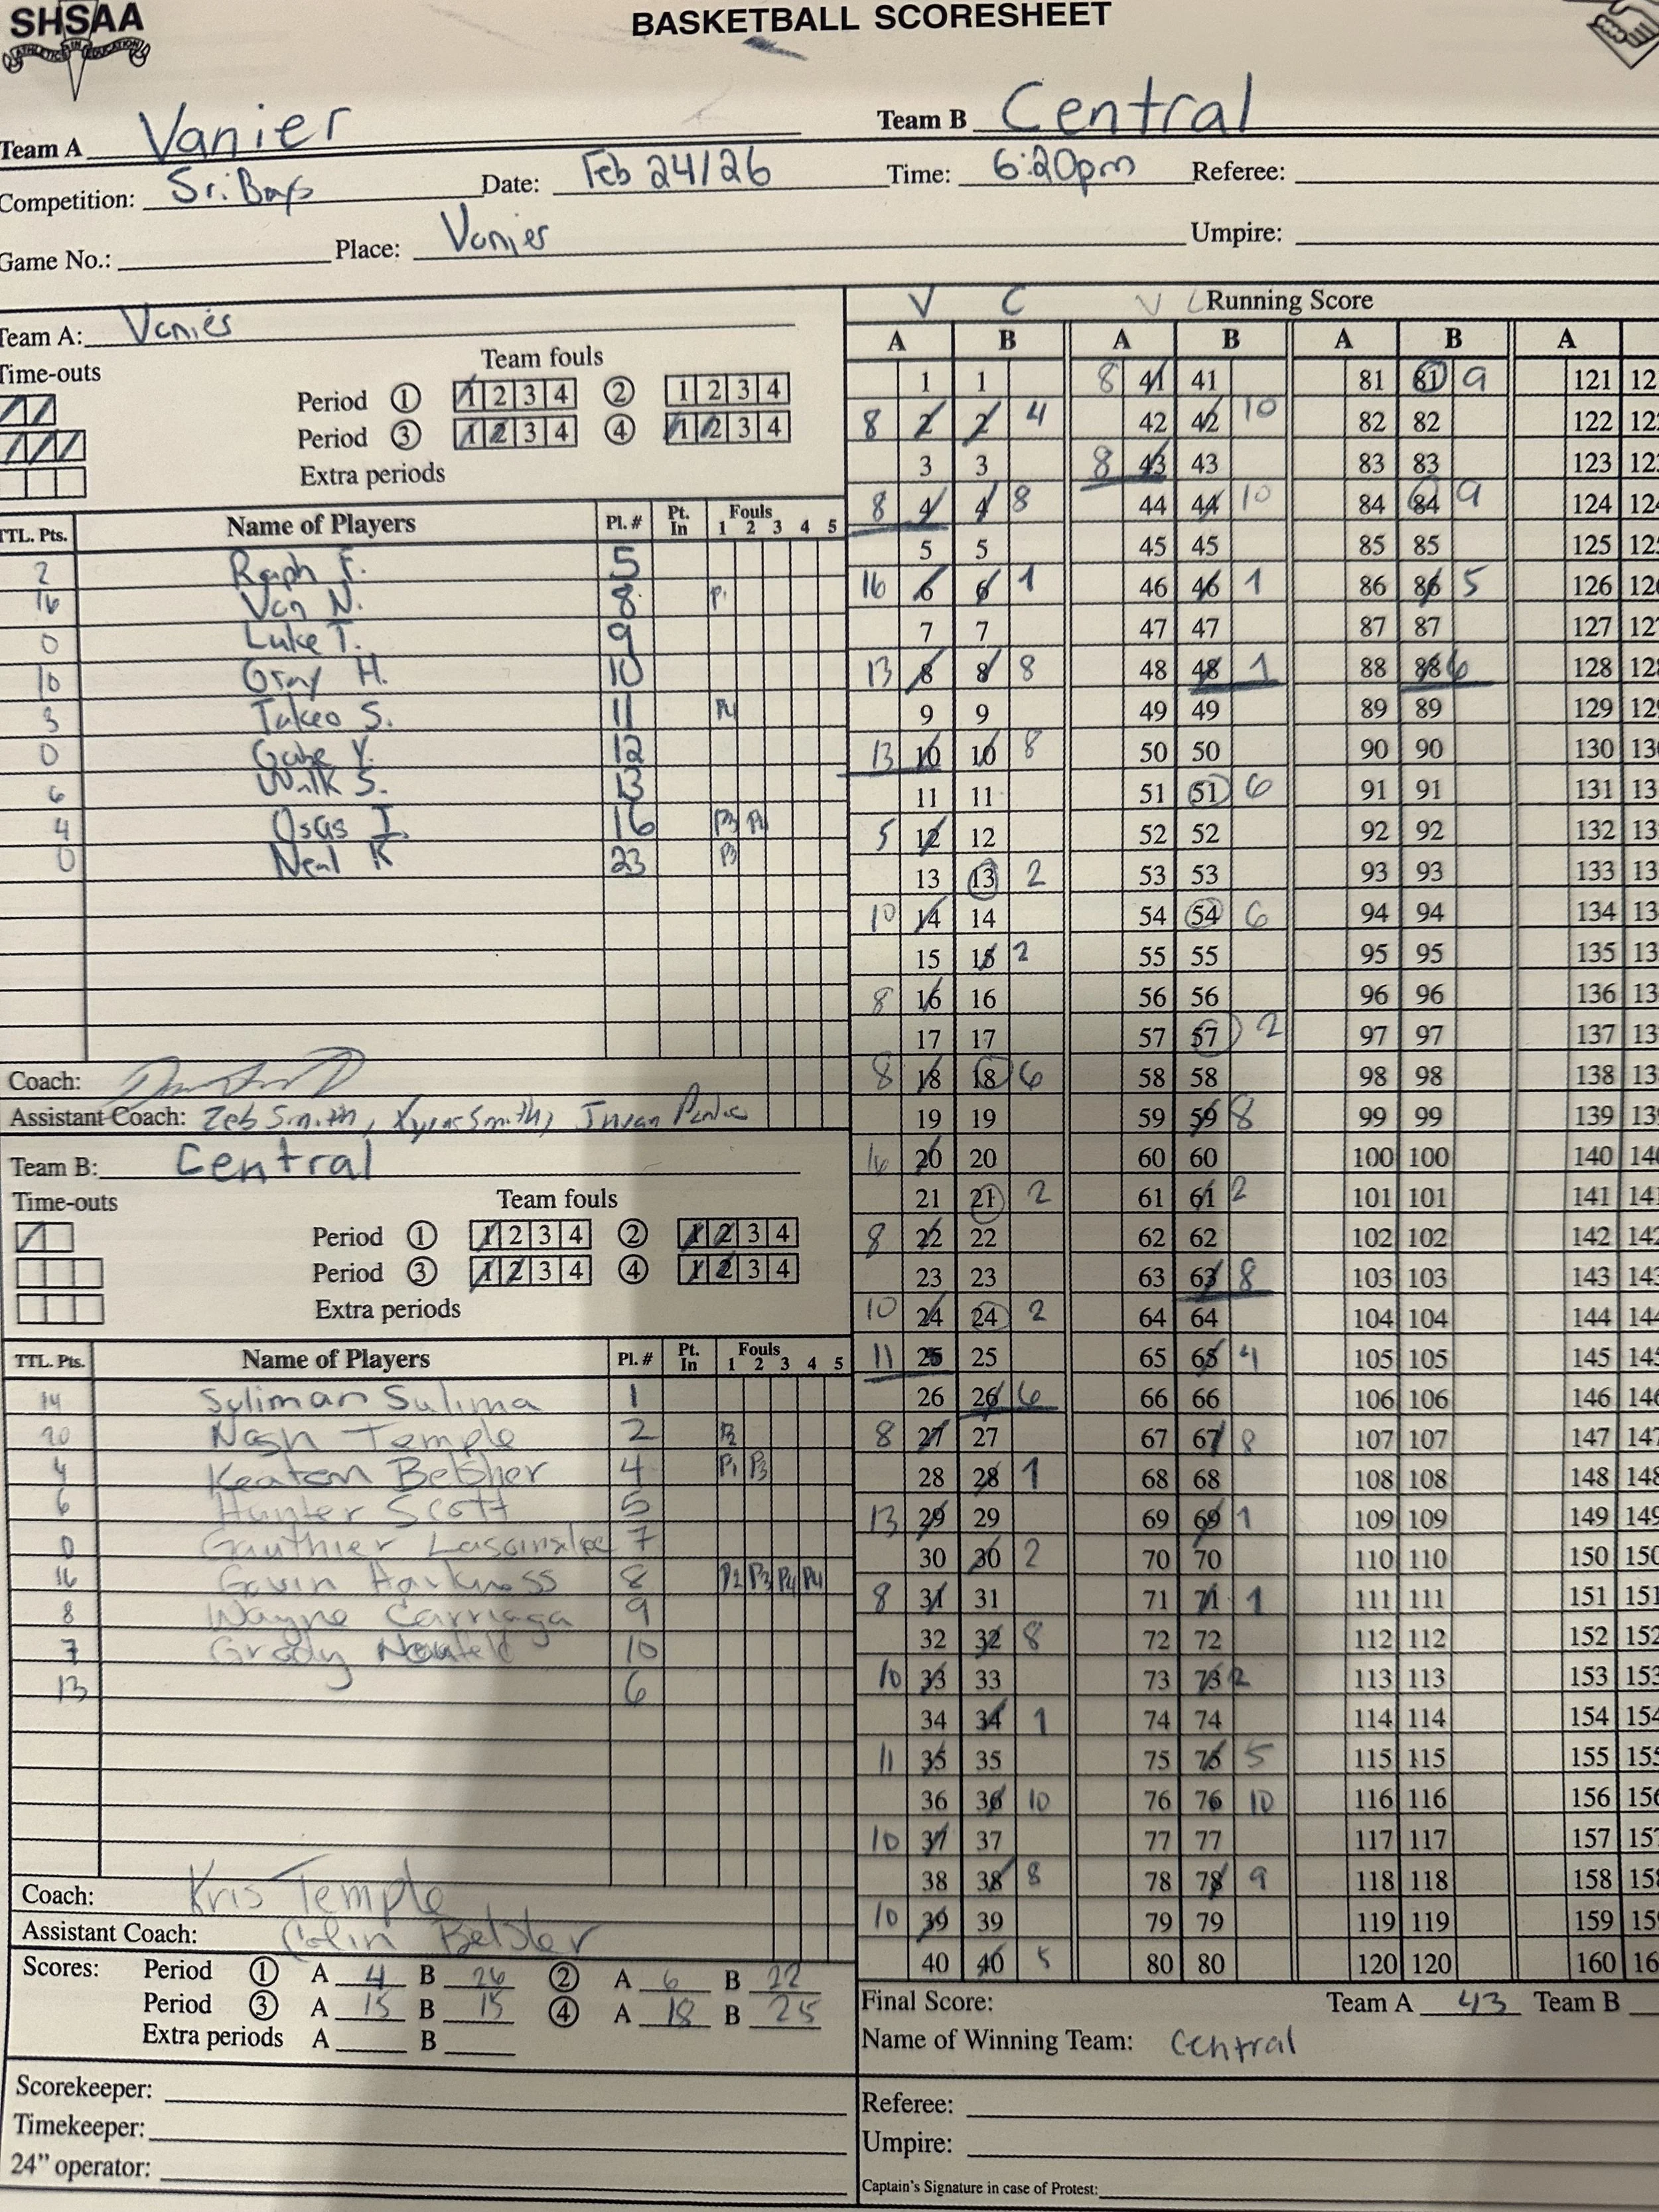 SHSAA
ATHLETICS IN EDUCATION
BASKETBALL SCORESHEET
Team A Vanier Team B Central
Competition: Sr. Boys Date: Feb 24/26 Time: 6:20pm Referee:
Game No.: Place: Vanier Umpire:
Team A: Vanier
Time-outs
Team fouls
Period 1 1 2 3 4 2 1 2 3 4
Period 3 1 2 3 4 4 1 2 3 4
Extra periods
TTL. Pts. Name of Players Pl. # Pt. In Fouls 1 2 3 4 5
2 Raph F. 5
16 Van N. 8 P1
0 Luke T. 9
10 Gray H. 10
3 Takeo S. 11 P4
0 Gabe Y. 12
6 S. 13
4 Osas I. 16 P3 P4
0 Neal K 23 P3
Coach:
Assistant Coach: Zeb Smith, Smith,
Team B: Central
Time-outs
Team fouls
Period 1 1 2 3 4 2 1 2 3 4
Period 3 1 2 3 4 4 1 2 3 4
Extra periods
TTL. Pts. Name of Players Pl. # Pt. In Fouls 1 2 3 4 5
14 Syliman Sulima 1
20 Nash Temple 2 P2
4 Keaton Belsher 4 P1 P3
6 Hunter Scott 5
0 Gauthier 7
16 Gavin Harkness 8 P2 P3 P4 P4
8 Wayne Carriaga 9
7 Grady Neufeld 10
13 6
Coach: Kris Temple
Assistant Coach: Colin Belsher
Scores: Period 1 A 4 B 26 2 A 6 B 22
Period 3 A 15 B 15 4 A 18 B 25
Extra periods A B
Scorekeeper:
Timekeeper:
24" operator:
V C V C Running Score
A B A B A B A
1 1 8 41 41 81 81 9 121 12
8 2 2 4 42 42 10 82 82 122 12
3 3 8 43 43 83 83 123 12
8 4 4 8 44 44 10 84 84 9 124 12
5 5 45 45 85 85 125 12
16 6 6 1 46 46 1 86 86 5 126 12
7 7 47 47 87 87 127 12
13 8 8 8 48 48 1 88 88 6 128 12
9 9 49 49 89 89 129 12
13 10 10 8 50 50 90 90 130 13
11 11 51 51 6 91 91 131 13
5 12 12 52 52 92 92 132 13
13 13 2 53 53 93 93 133 13
10 14 14 54 54 6 94 94 134 13
15 15 2 55 55 95 95 135 13
8 16 16 56 56 96 96 136 13
17 17 57 57 2 97 97 137 13
8 18 18 6 58 58 98 98 138 13
19 19 59 59 8 99 99 139 13
16 20 20 60 60 100 100 140 14
21 21 2 61 61 2 101 101 141 14
8 22 22 62 62 102 102 142 14
23 23 63 63 8 103 103 143 14
10 24 24 2 64 64 104 104 144 14
11 25 25 65 65 4 105 105 145 14
26 26 6 66 66 106 106 146 14
8 27 27 67 67 8 107 107 147 14
28 28 1 68 68 108 108 148 14
13 29 29 69 69 1 109 109 149 14
30 30 2 70 70 110 110 150 15
8 31 31 71 71 1 111 111 151 15
32 32 8 72 72 112 112 152 15
10 33 33 73 73 2 113 113 153 15
34 34 1 74 74 114 114 154 15
11 35 35 75 75 5 115 115 155 15
36 36 10 76 76 10 116 116 156 15
10 37 37 77 77 117 117 157 15
38 38 8 78 78 9 118 118 158 15
10 39 39 79 79 119 119 159 15
40 40 5 80 80 120 120 160 16
Final Score: Team A 43 Team B
Name of Winning Team: Central
Referee:
Umpire:
Captain's Signature in case of Protest: